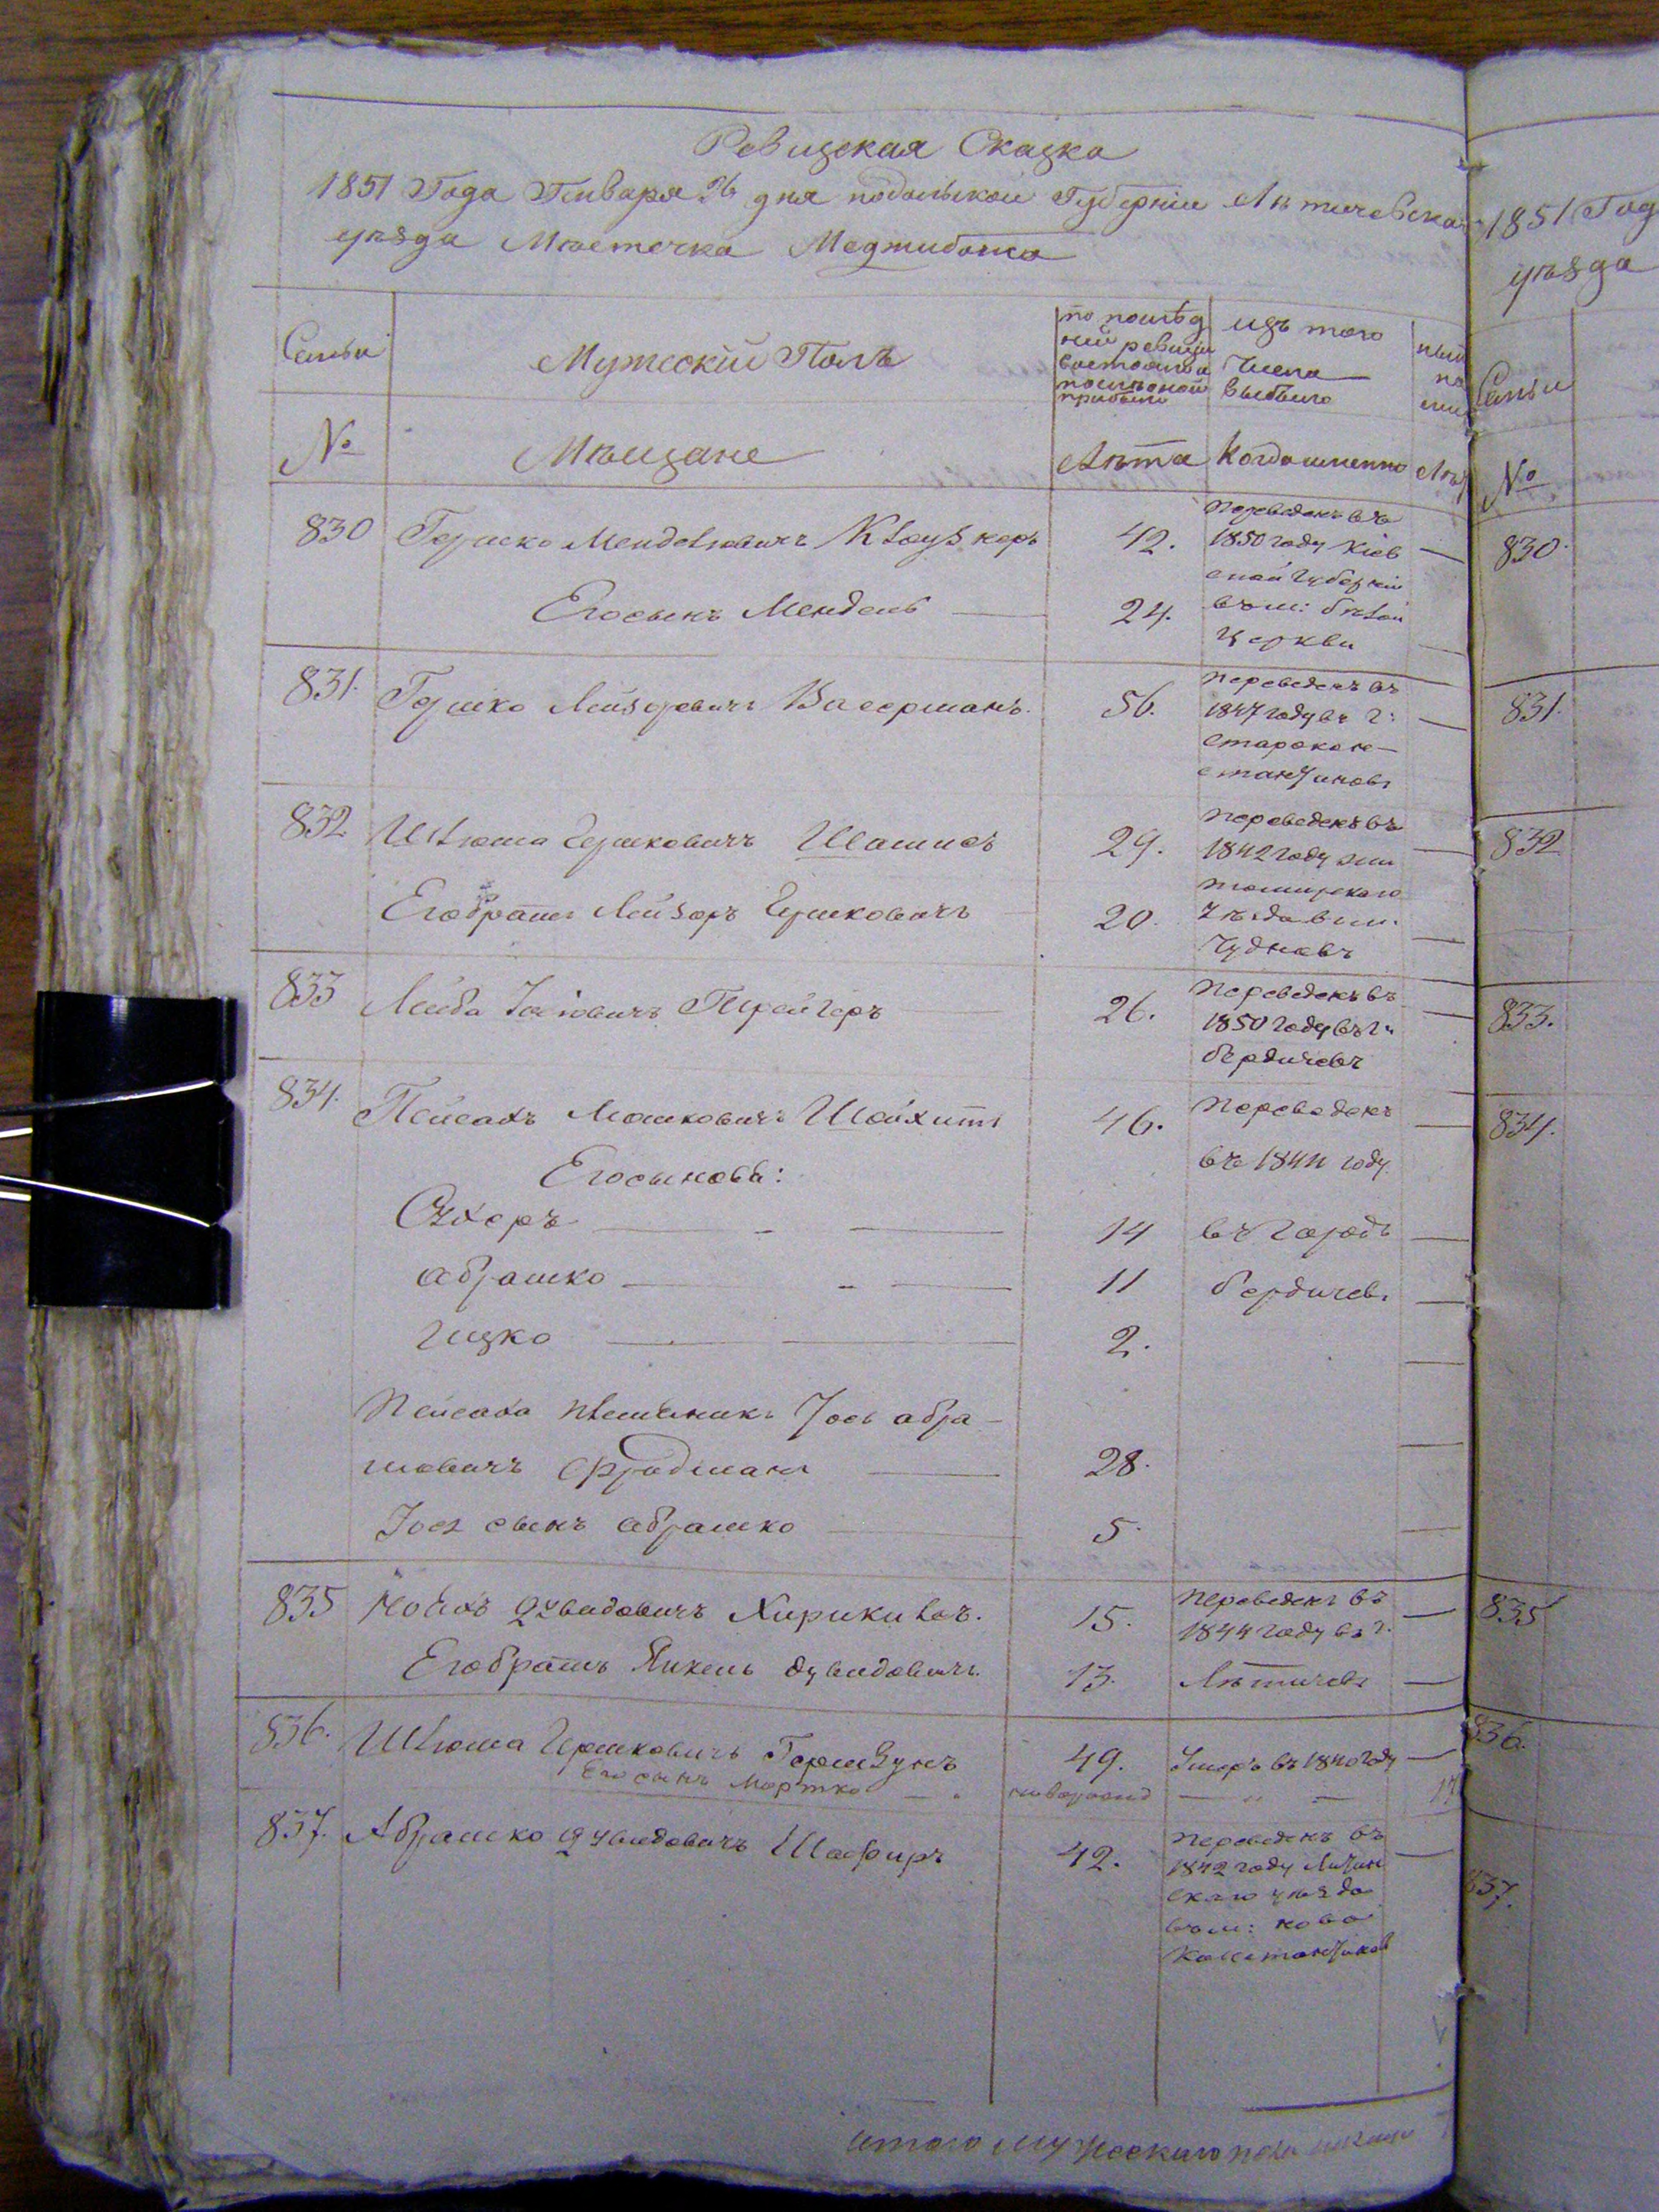 Ревизская Сказка
1851 Года Генваря дня подольской Губерніи Лѣтичевска
уѣзда Мѣстечка Меджибожа
Семьи
Мужескій Полъ
по послѣд
ней ревизіи
состояло и
послѣ оной
прибыло
изъ того
числа
выбыло
№
Мѣщане
Лѣта
Когда именно
830 Гершко Менделювичъ Клаузнеръ 42.
переведенъ въ
1850 году Кіев
ской губерніи
въ м: бѣлой
Церкви
Его сынъ Мендель 24.
831. Гершко Лейзеровичъ Васерманъ. 56.
переведенъ въ
1847 году въ г:
старокон-
стантинов
832 Шлюма Гершковичъ Шамисъ 29.
переведенъ въ
1842 году жи
томирскаго
уѣзда въ м.
Чудновъ
Его братъ Лейзоръ Гершковичъ 20.
833 Лейба Іосіовичъ 26.
переведенъ въ
1850 году въ г:
бердичевъ
834. Пейсахъ Мошковичъ Шойхитъ 46.
переведенъ
въ 1844 году
въ городъ
бердичевъ
Его сыновья:
Сухеръ 14
абрашко 11
Ицко 2.
Пейсаха племянникъ Іось абра-
мовичъ Фрадманъ 28.
Іося сынъ абрашко 5.
835 Дувидовичъ 15.
переведенъ въ
1844 году въ г.
Лѣтичевъ
Его братъ Янкель дувидовичъ. 13.
836. Шлюма Гершковичъ Гершзунъ 49. Умеръ въ 1840 году
Его сынъ Мортко новорожд
837. Абрашко Дувидовичъ Шафиръ 42.
переведенъ въ
1842 году Литин
скаго уѣзда
въ м: ново
Константинов
итого мужескаго пола
1851 Год
уѣзда
Семьи
№
830
831.
832
833.
834.
835
836.
837.